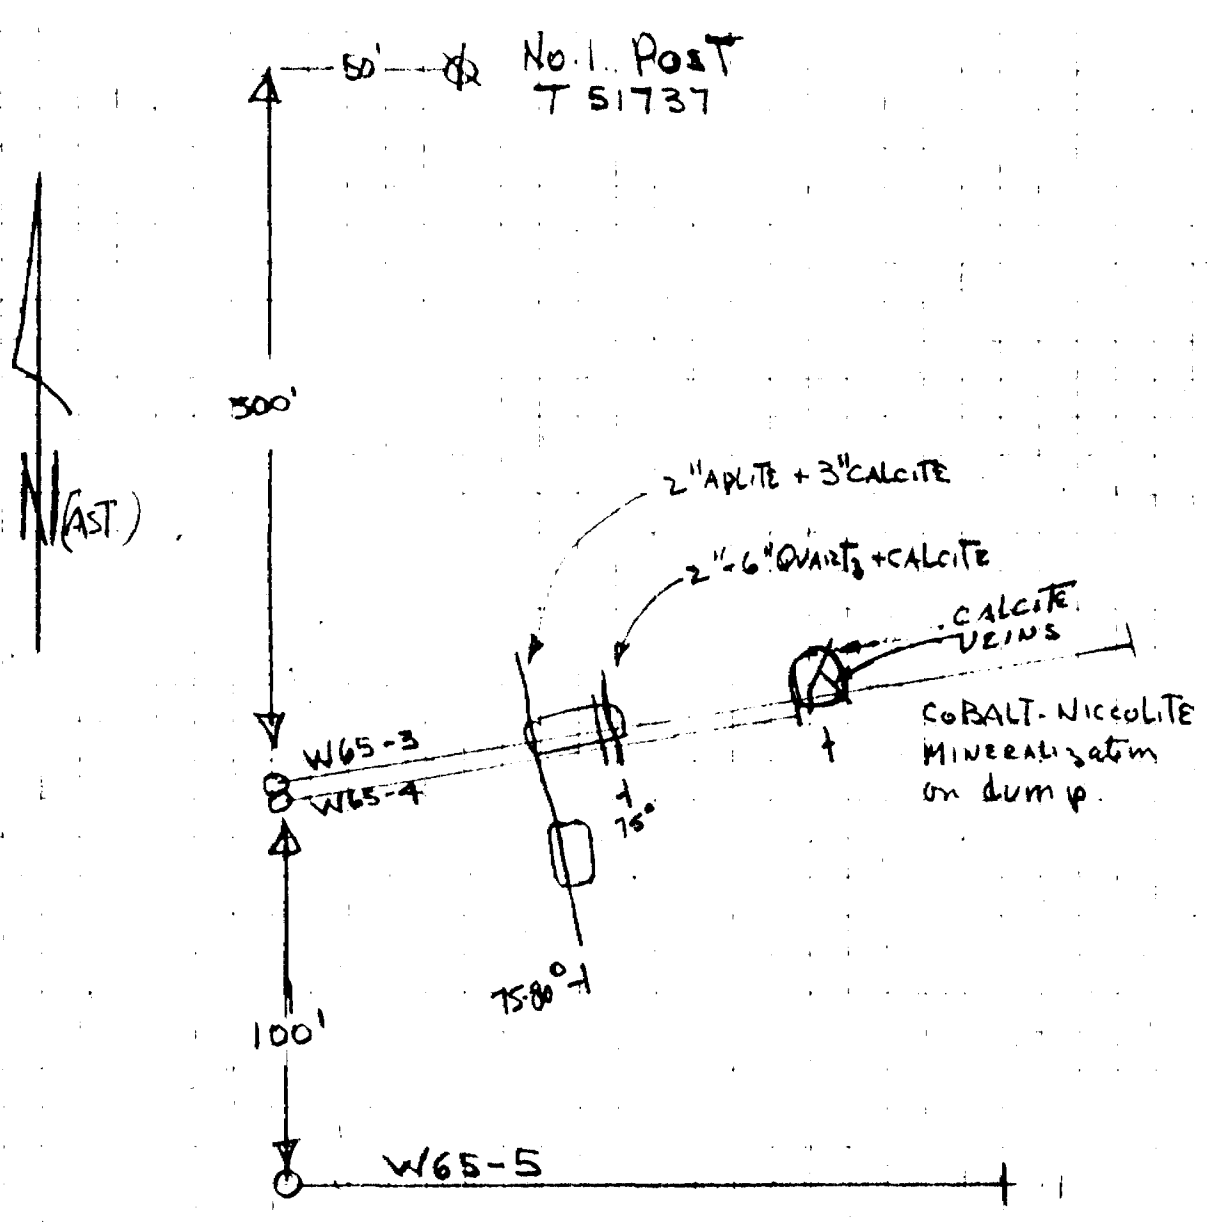 50' No. 1. Post
T 51737
300'
N (AST.)
2" APLITE + 3" CALCITE
2"-6" QUARTZ + CALCITE
CALCITE
VEINS
W65-3
W65-4
COBALT-NICCOLITE
MINERALIZATION
on dump.
75°
75-80°
100'
W65-5